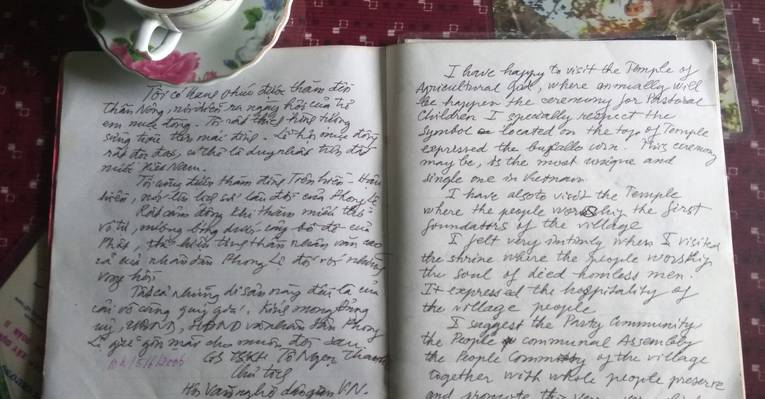 Tôi có hạnh phúc được thăm đền
Thần Nông, nơi diễn ra ngày hội của trẻ
em mục đồng. Tôi rất thích biểu tượng
sừng trâu trên mái đình. Lễ hội mục đồng
rất độc đáo, có thể là duy nhất trên đất
nước Việt Nam.
Tôi cũng được thăm đình Thần
hiền, nơi
Rất cảm động khi thăm miếu thờ
vô tự, nương bóng dưới cây bồ đề của
Phật, thể hiện lòng nhân văn cao
cả của nhân dân Phong Lệ đối với những
vong hồn
Tất cả những di sản này đều là của
cải vô cùng quý giá. Kính mong Đảng
uỷ, UBND, HĐND và nhân dân Phong
Lệ giữ gìn mãi cho muôn đời sau.
GS TSKH Tô Ngọc Thanh
/5/6/2006
Chủ tịch
Hội Văn nghệ dân gian VN.
I have happy to visit the Temple of
Agricultural God, where annually will
be happen the ceremony for Pastoral
Children I specially respect the
symbol located on the top of Temple
expressed the buffallo corn. This ceremony
may be, is the most unique and
single one in Vietnam
I have also to visit the Temple
where the people worship the first
foundators of the village
I felt very intimly when I visited
the shrine where the people worship
the soul of died homless men.
It expressed the hospitality of
the village people
I suggest the Party Community
the People communal Assembly
the People Commity of the village
together with whole people preserve
and promote the very